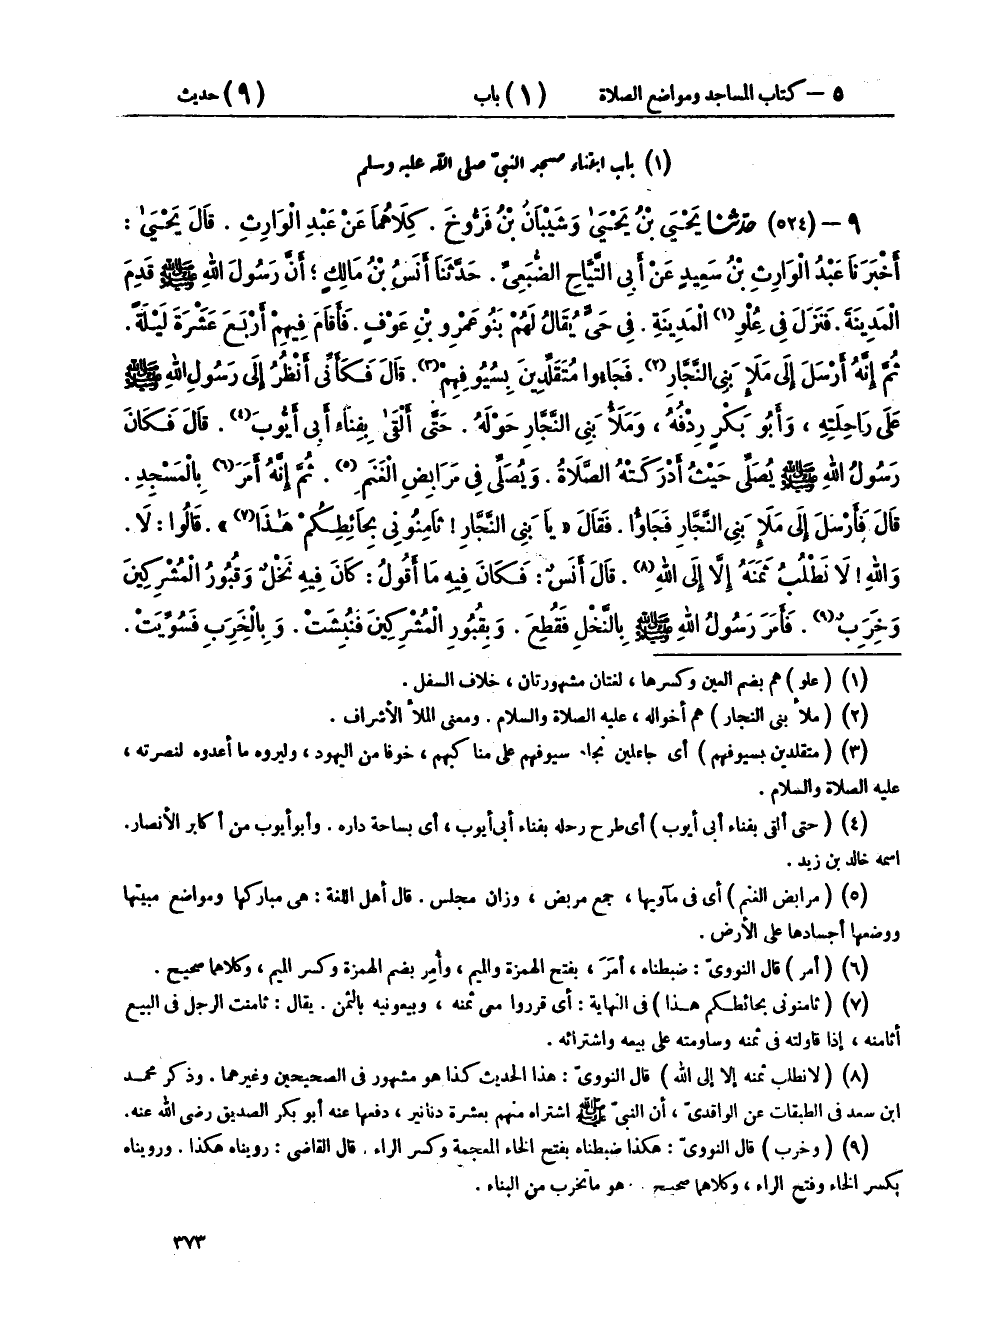 ٥ – كتاب المساجد ومواضع الصلاة (١) باب (٩) حديث
(١) باب ابتناء مسجد النبيّ صلى الله عليه وسلم
٩ – (٥٢٤) حدّثنا يَحْيَىٰ بْنُ يَحْيَىٰ وَشَيْبَانُ بْنُ فَرُّوخَ . كِلَاهُمَا عَنْ عَبْدِ الْوَارِثِ . قَالَ يَحْيَىٰ :
أَخْبَرَنَا عَبْدُ الْوَارِثِ بْنُ سَعِيدٍ عَنْ أَبِي التَّيَّاحِ الضُّبَعِيِّ . حَدَّثَنَا أَنَسُ بْنُ مَالِكٍ ؛ أَنَّ رَسُولَ اللهِ ﷺ قَدِمَ
الْمَدِينَةَ . فَنَزَلَ فِي عُِلْوِ(١) الْمَدِينَةِ . فِي حَىٍّ يُقَالُ لَهُمْ بَنُو عَمْرِو بْنِ عَوْفٍ . فَأَقَامَ فِيهِمْ أَرْبَعَ عَشْرَةَ لَيْلَةً .
ثُمَّ إِنَّهُ أَرْسَلَ إِلَى مَلَإِ بَنِي النَّجَّارِ(٢) . فَجَاءوا مُتَقَلِّدِينَ بِسُيُوفِهِمْ(٣) . قَالَ فَكَأَنِّي أَنْظُرُ إِلَى رَسُولِ اللهِ ﷺ
عَلَى رَاحِلَتِهِ ، وَأَبُو بَكْرٍ رِدْفُهُ ، وَمَلَأُ بَنِي النَّجَّارِ حَوْلَهُ . حَتَّى أَلْقَىٰ بِفِنَاءِ أَبِي أَيُّوبَ(٤) . قَالَ فَكَانَ
رَسُولُ اللهِ ﷺ يُصَلِّي حَيْثُ أَدْرَكَتْهُ الصَّلَاةُ . وَيُصَلِّي فِي مَرَابِضِ الْغَنَمِ(٥) . ثُمَّ إِنَّهُ أَمَرَ(٦) بِالْمَسْجِدِ .
قَالَ فَأَرْسَلَ إِلَى مَلَإِ بَنِي النَّجَّارِ فَجَاؤُا . فَقَالَ « يَا بَنِي النَّجَّارِ ! ثَامِنُونِي بِحَائِطِكُمْ هَـٰذَا(٧) » . قَالُوا : لَا .
وَاللهِ ! لَا نَطْلُبُ ثَمَنَهُ إِلَّا إِلَى اللهِ(٨) . قَالَ أَنَسٌ : فَكَانَ فِيهِ مَا أَقُولُ : كَانَ فِيهِ نَخْلٌ وَقُبُورُ الْمُشْرِكِينَ
وَخَرِبٌ(٩) . فَأَمَرَ رَسُولُ اللهِ ﷺ بِالنَّخْلِ فَقُطِعَ . وَبِقُبُورِ الْمُشْرِكِينَ فَنُبِشَتْ . وَبِالْخَرِبِ فَسُوِّيَتْ .
(١) ( علو ) هم بضم العين وكسرها ، لغتان مشهورتان ، خلاف السفل .
(٢) ( ملأ بنى النجار ) هم أخواله ، عليه الصلاة والسلام . ومعنى الملأ الأشراف .
(٣) ( متقلدين بسيوفهم ) أى جاعلين نجاد سيوفهم على مناكبهم ، خوفا من اليهود ، وليروه ما أعدوه لنصرته ،
عليه الصلاة والسلام .
(٤) ( حتى ألقى بفناء أبى أيوب ) أى طرح رحله بفناء أبى أيوب ، أى بساحة داره . وأبو أيوب من أكابر الأنصار .
اسمه خالد بن زيد .
(٥) ( مرابض الغنم ) أى فى مآويها ، جمع مربض ، وزان مجلس . قال أهل اللغة : هى مباركها ومواضع مبيتها
ووضعها أجسادها على الأرض .
(٦) ( أمر ) قال النووىّ : ضبطناه ، أَمَرَ ، بفتح الهمزة والميم ، وأُمِر بضم الهمزة وكسر الميم ، وكلاهما صحيح .
(٧) ( ثامنونى بحائطكم هـذا ) فى النهاية : أى قرروا معى ثمنه ، وبيعونيه بالثمن . يقال : ثامنت الرجل فى البيع
أثامنه ، إذا قاولته فى ثمنه وساومته على بيعه واشترائه .
(٨) ( لا نطلب ثمنه إلا إلى الله ) قال النووىّ : هذا الحديث كذا هو مشهور فى الصحيحين وغيرهما . وذكر محمد
ابن سعد فى الطبقات عن الواقدىّ ، أن النبىّ ﷺ اشتراه منهم بعشرة دنانير ، دفعها عنه أبو بكر الصديق رضى الله عنه .
(٩) ( وخرب ) قال النووىّ : هكذا ضبطناه بفتح الخاء المعجمة وكسر الراء . قال القاضى : رويناه هكذا . ورويناه
بكسر الخاء وفتح الراء ، وكلاهما صحيح . هو ما تخرب من البناء .
٣٧٣